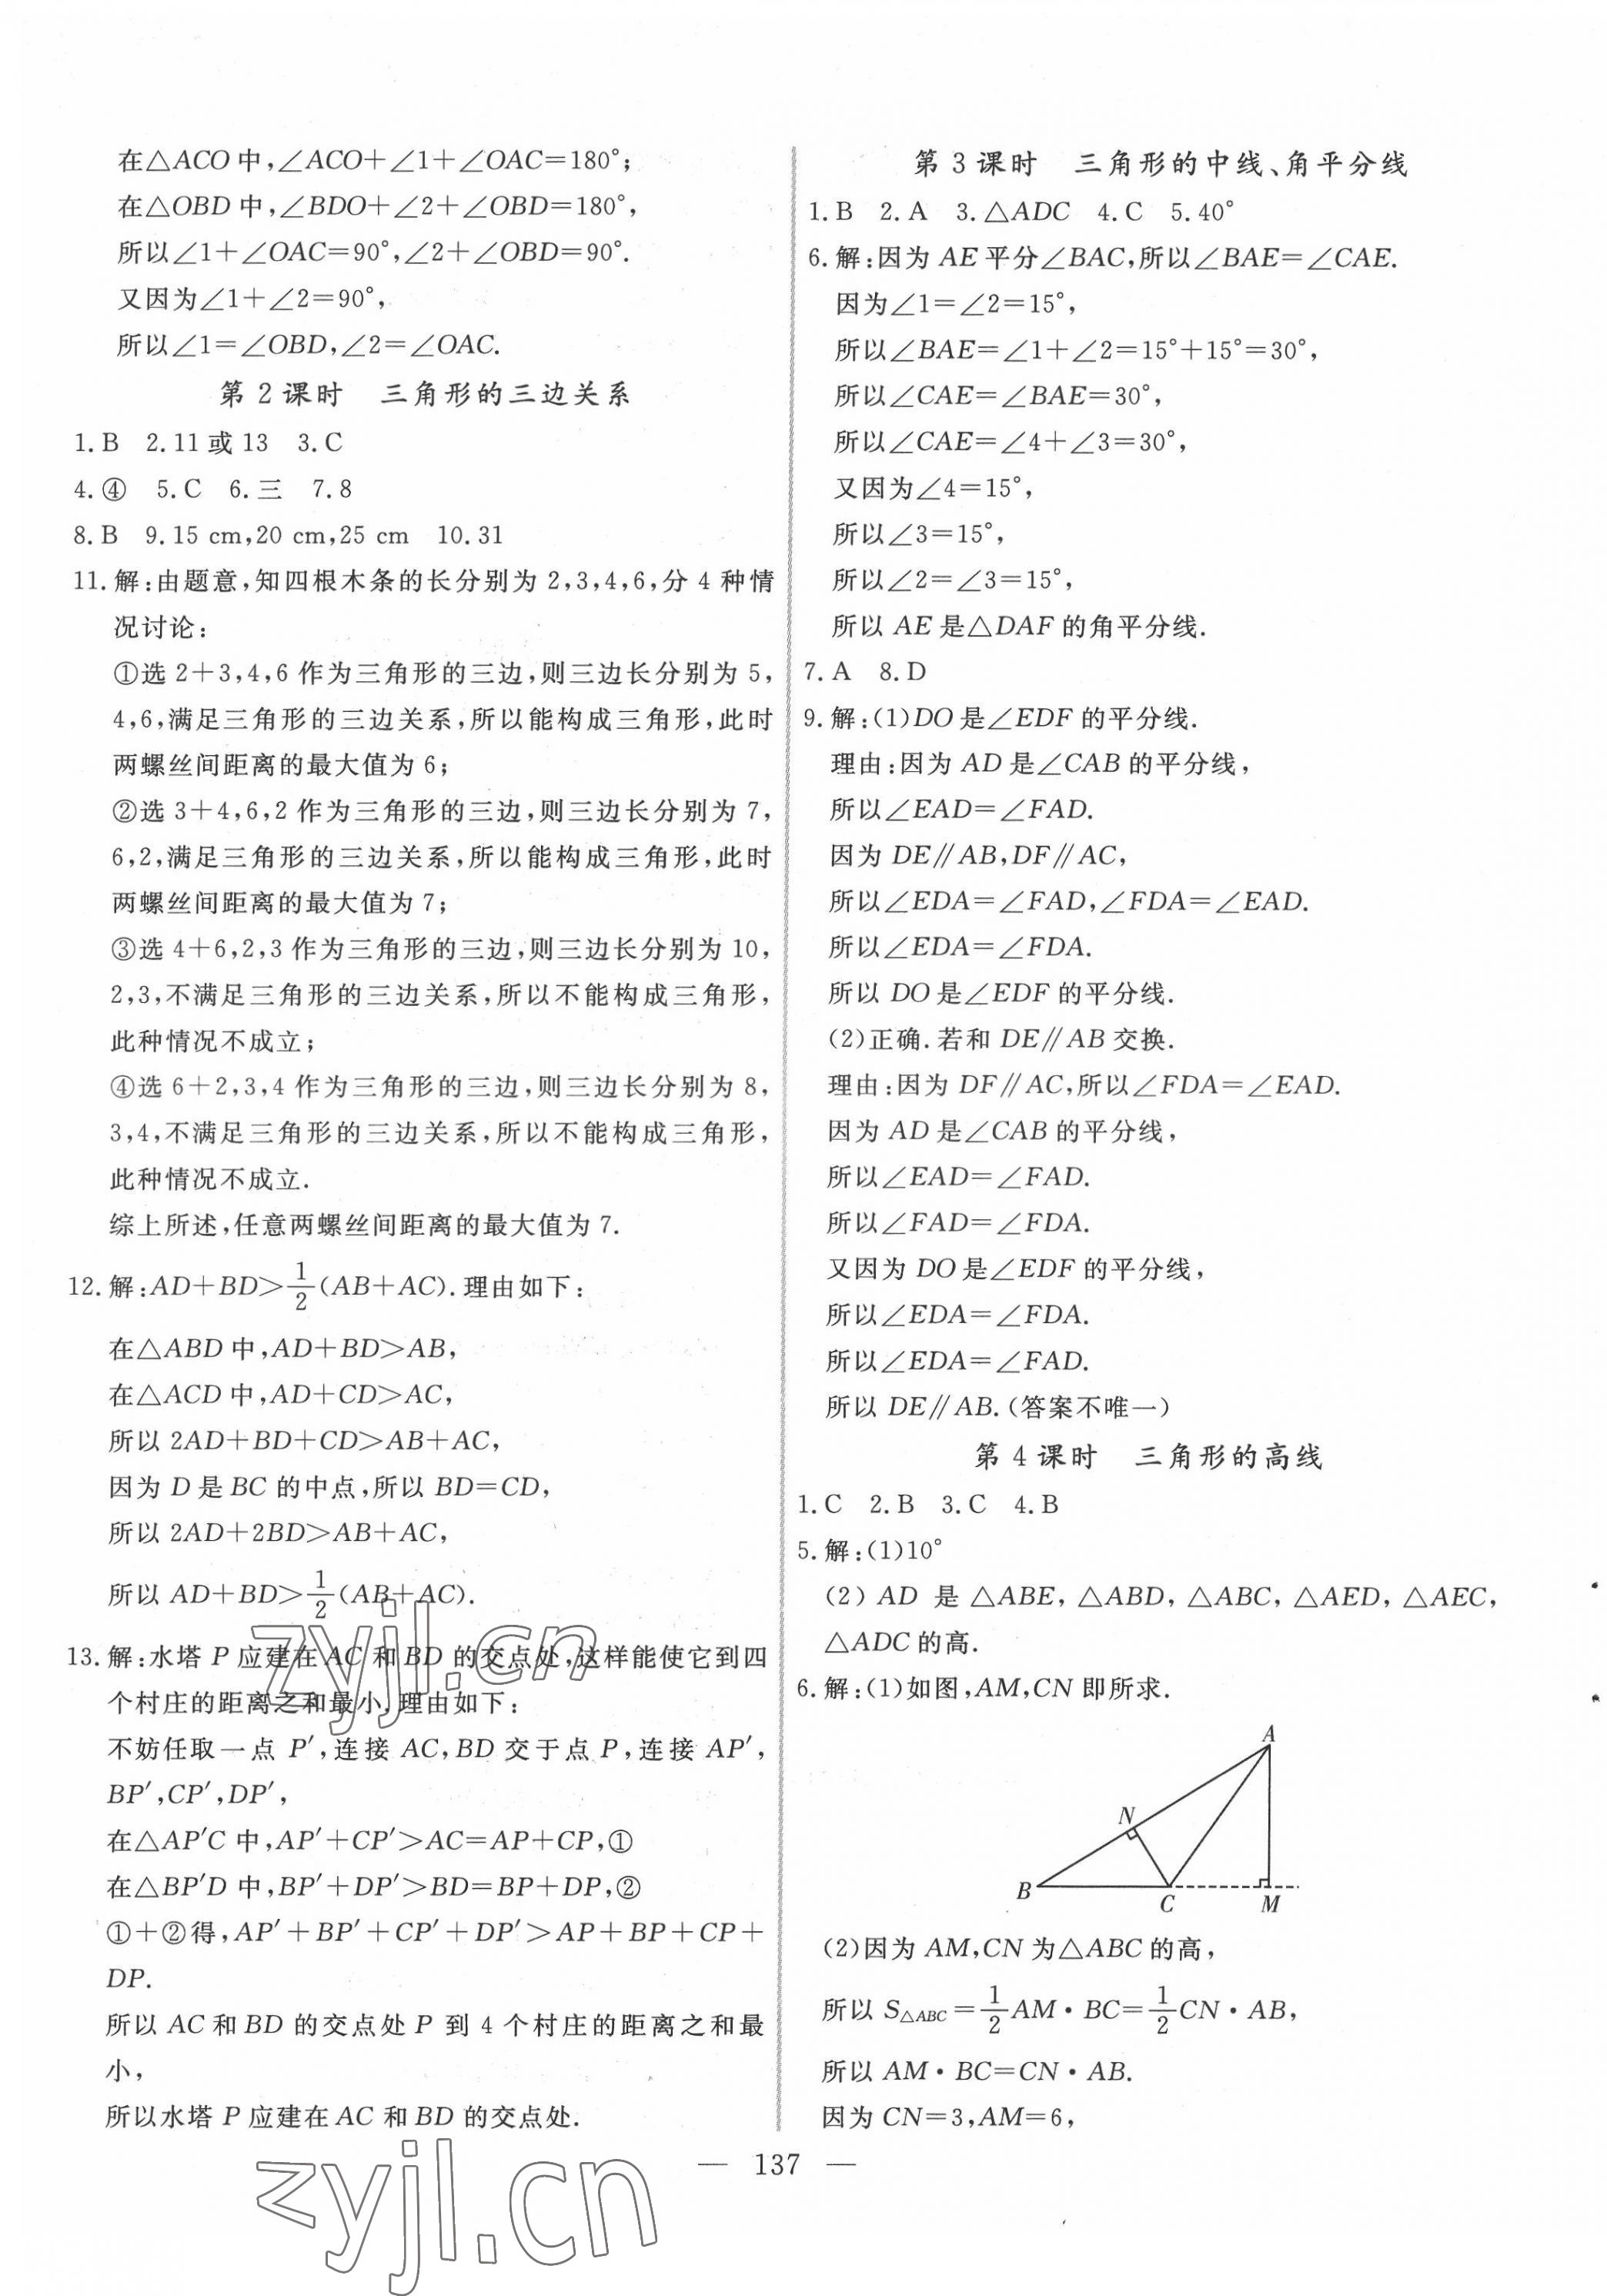 在△ACO中,∠ACO+∠1+∠OAC=180°;
在△OBD中,∠BDO+∠2+∠OBD=180°,
所以∠1+∠OAC=90°,∠2+∠OBD=90°.
又因为∠1+∠2=90°,
所以∠1=∠OBD,∠2=∠OAC.
第2课时 三角形的三边关系
1.B 2.11或13 3.C
4.④ 5.C 6.三 7.8
8.B 9.15 cm,20 cm,25 cm 10.31
11.解:由题意,知四根木条的长分别为2,3,4,6,分4种情
况讨论:
①选2+3,4,6作为三角形的三边,则三边长分别为5,
4,6,满足三角形的三边关系,所以能构成三角形,此时
两螺丝间距离的最大值为6;
②选3+4,6,2作为三角形的三边,则三边长分别为7,
6,2,满足三角形的三边关系,所以能构成三角形,此时
两螺丝间距离的最大值为7;
③选4+6,2,3作为三角形的三边,则三边长分别为10,
2,3,不满足三角形的三边关系,所以不能构成三角形,
此种情况不成立;
④选6+2,3,4作为三角形的三边,则三边长分别为8,
3,4,不满足三角形的三边关系,所以不能构成三角形,
此种情况不成立.
综上所述,任意两螺丝间距离的最大值为7.
12.解:AD+BD>1/2(AB+AC).理由如下:
在△ABD中,AD+BD>AB,
在△ACD中,AD+CD>AC,
所以2AD+BD+CD>AB+AC,
因为D是BC的中点,所以BD=CD,
所以2AD+2BD>AB+AC,
所以AD+BD>1/2(AB+AC).
13.解:水塔P应建在AC和BD的交点处,这样能使它到四
个村庄的距离之和最小.理由如下:
不妨任取一点P′,连接AC,BD交于点P,连接AP′,
BP′,CP′,DP′,
在△AP′C中,AP′+CP′>AC=AP+CP,①
在△BP′D中,BP′+DP′>BD=BP+DP,②
①+②得,AP′+BP′+CP′+DP′>AP+BP+CP+
DP.
所以AC和BD的交点处P到4个村庄的距离之和最
小,
所以水塔P应建在AC和BD的交点处.
第3课时 三角形的中线、角平分线
1.B 2.A 3.△ADC 4.C 5.40°
6.解:因为AE平分∠BAC,所以∠BAE=∠CAE.
因为∠1=∠2=15°,
所以∠BAE=∠1+∠2=15°+15°=30°,
所以∠CAE=∠BAE=30°,
所以∠CAE=∠4+∠3=30°,
又因为∠4=15°,
所以∠3=15°,
所以∠2=∠3=15°,
所以AE是△DAF的角平分线.
7.A 8.D
9.解:(1)DO是∠EDF的平分线.
理由:因为AD是∠CAB的平分线,
所以∠EAD=∠FAD.
因为DE∥AB,DF∥AC,
所以∠EDA=∠FAD,∠FDA=∠EAD.
所以∠EDA=∠FDA.
所以DO是∠EDF的平分线.
(2)正确.若和DE∥AB交换.
理由:因为DF∥AC,所以∠FDA=∠EAD.
因为AD是∠CAB的平分线,
所以∠EAD=∠FAD.
所以∠FAD=∠FDA.
又因为DO是∠EDF的平分线,
所以∠EDA=∠FDA.
所以∠EDA=∠FAD.
所以DE∥AB.(答案不唯一)
第4课时 三角形的高线
1.C 2.B 3.C 4.B
5.解:(1)10°
(2)AD是△ABE,△ABD,△ABC,△AED,△AEC,
△ADC的高.
6.解:(1)如图,AM,CN即所求.
A
N
B
C
M
(2)因为AM,CN为△ABC的高,
所以S△ABC=1/2AM·BC=1/2CN·AB,
所以AM·BC=CN·AB.
因为CN=3,AM=6,
— 137 —
zyjl.cn
zyjl.cn